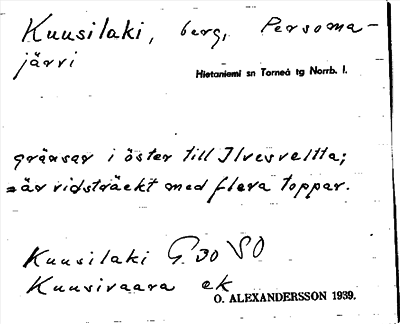 Kuusilaki, berg, Persoma-
järvi
Hietaniemi sn Torneå tg Norrb. l.
gränsar i öster till Ilvesveltta;
är vidsträckt med flera toppar.
Kuusilaki G. 30 SO
Kuusivaara ek
O. ALEXANDERSSON 1939.